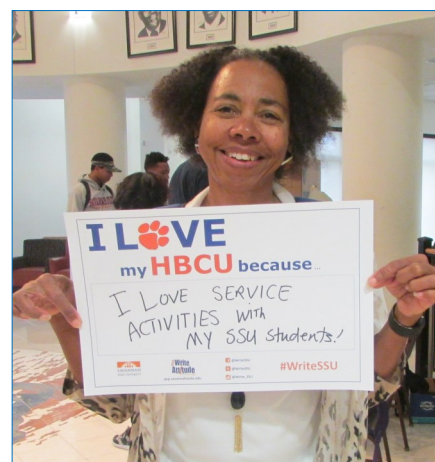 I LOVE
my HBCU because...
I LOVE SERVICE
ACTIVITIES with
MY SSU students!
the Write
Attitude
#WriteSSU